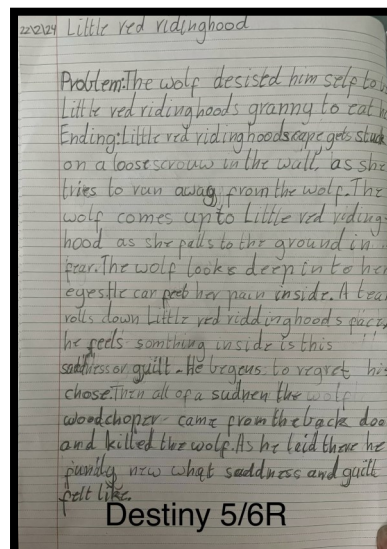 22/2/24 Little red ridinghood
Problem:The wolf desisted him self to
Little red ridinghoods granny to eat
Ending:Little red ridinghoodscape gets stuck
on a loose scrouw in the wall, as she
tries to run away from the wolf. The
wolf comes up to Little red riding-
hood as she falls to the ground in
fear. The wolf looks deep in to her
eyes. He can feel her pain inside. A tear
rolls down Little red riddinghoods face,
he feels somthing inside is this
saddness or guilt. He begens to regret his
chose. Then all of a sudnen the wolf
woodchoper came from the back doo
and killed the wolf. As he laid there he
new what saddness and guilt
felt like.
Destiny 5/6R